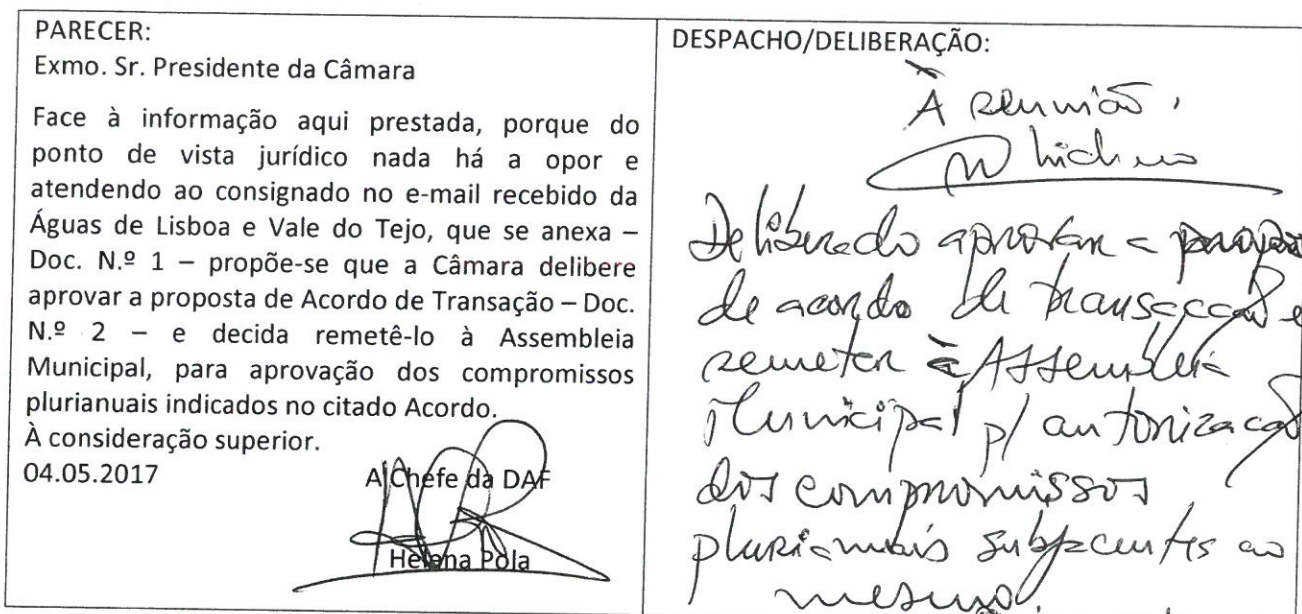 PARECER:
Exmo. Sr. Presidente da Câmara
Face à informação aqui prestada, porque do
ponto de vista jurídico nada há a opor e
atendendo ao consignado no e-mail recebido da
Águas de Lisboa e Vale do Tejo, que se anexa –
Doc. N.º 1 – propõe-se que a Câmara delibere
aprovar a proposta de Acordo de Transação – Doc.
N.º 2 – e decida remetê-lo à Assembleia
Municipal, para aprovação dos compromissos
plurianuais indicados no citado Acordo.
À consideração superior.
04.05.2017
A Chefe da DAF
Helena Pola
DESPACHO/DELIBERAÇÃO:
À reunião,
Deliberado aprovar a
de acordo de transacção e
remeter à Assembleia
Municipal p/ autorização
dos compromissos
plurianuais subjacentes ao
mesmo